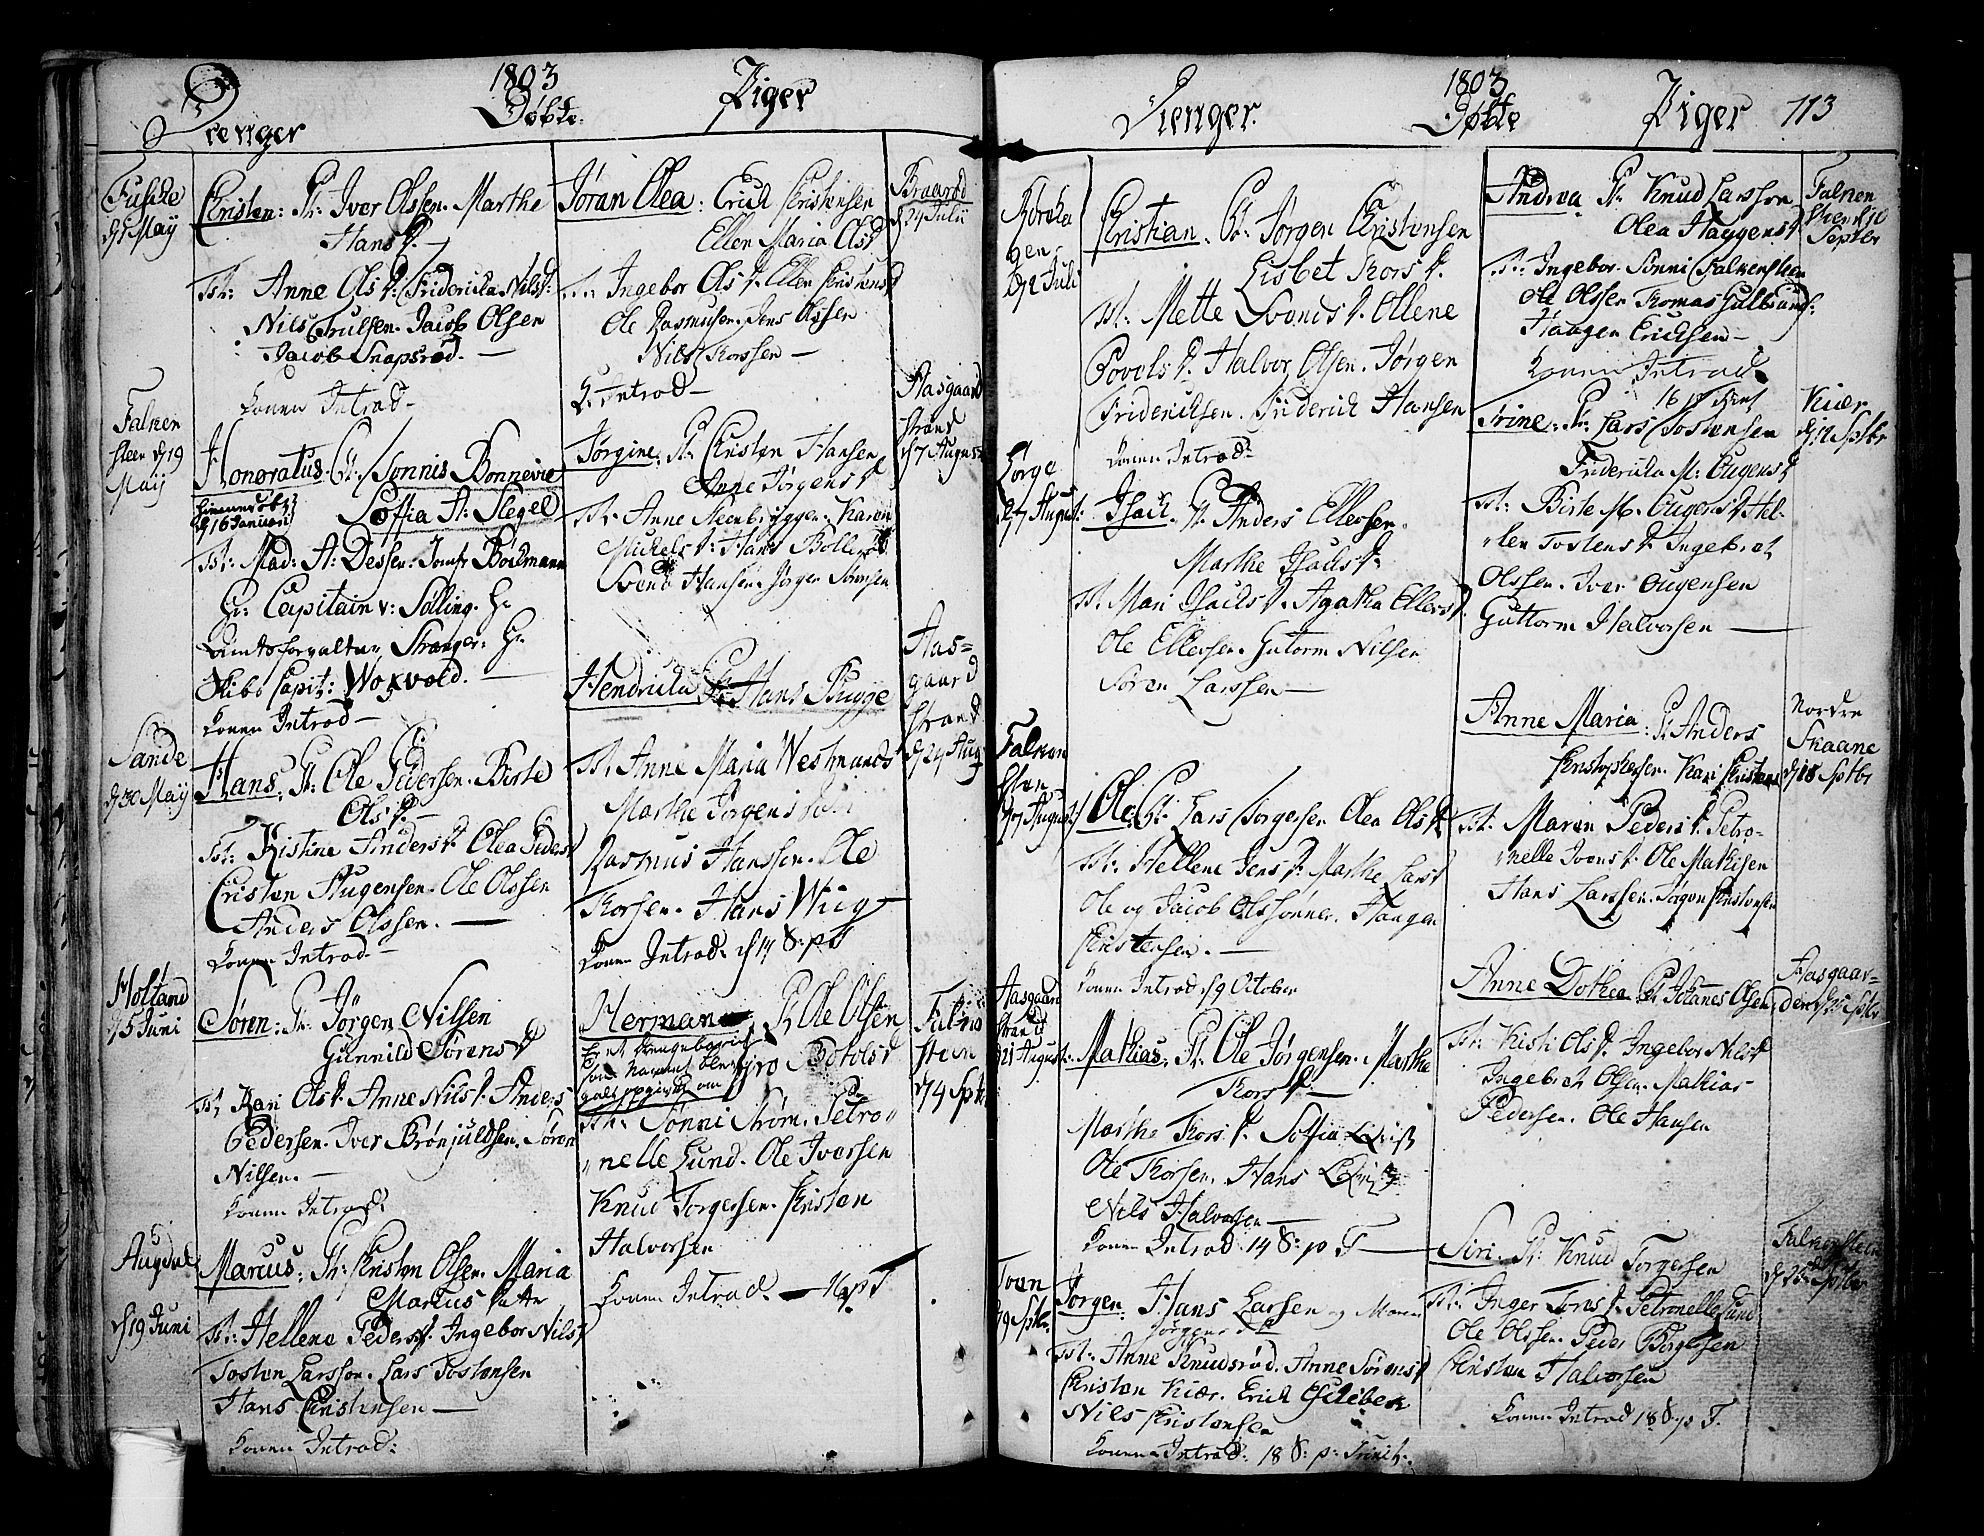 1803
Drenger Døbte. Piger
Fuske
d 1 Maij
Kristen: Fr: Iver Olssen. Marthe
Hans D.
Tst: Anne Ols D. Friderika Nils D:
Nils Trulsen. Jacob Olsen
Jacob Snapsrød. —
Konen Introd.
Falken
steen d 19
Maij
Honoratus. Fr: Sønnis Bonnevie
Soffia A: Slegel
hiemmedøbt
d 16 Januari
Tst: Mad: A: Dessen. Jomfr Bochmann
Hr: Capitain v: Sølling. Hr
Stranger: Hr.
Skibs Capit: Woxvold. —
Konen Introd —
Sande
d 30 Maij
Hans: Fr: Ole Pedersen. Birte
Ols D. —
Tst: Kistine Anders D. Olea Peders D
Cristen Augensen. Ole Olssen
Anders Olssen. —
Konen Introd. —
Holtand
d 5 Juni
Søren: Fr: Jørgen Nilsen
Gunnild Sørens D
Tst Kari Ols D. Anne Nils D. Anders
Pedersen. Iver Brønjuldsen. Søren
Nilsen. —
Konen Introd
Augdal
d 19 Juni
Marcus: Fr: Kristen Olsen. Maria
Markus Datter
Tst: Hellena Peders D. Ingebor Nils D
Tosten Larssen. Lars Tostensen
Hans Kristensen —
Konen Introd:
Jøran Olea: Erick Kristensen
Ellen Maria Ols D
Tst: Ingebor Ols D. Ellen Kristens D
Ole Rasmusen. Jens Olssen
Nils Korssen —
K: Introd —
Braarød
d 24 Julii
Jørgine: Fr: Kristen Hansen
Anne Jørgens D
Tst: Anne Steenbrygger. Karen
Mickels D: Hans Bollerød
Svend Hansen. Jørgen Sørensen
Aasgaard
strand
d 7 August
Hendricka Fr: Hans Bugge
Tst, Anne Maria Westmands
Marthe Jørgens
Rasmus Hanssen. Ole
Korsen. Hans Wiig
Konen Introd. d 14 S: p T
Aas=
gaard
strand
d 24 Aug
Herman F, Ole Olsen
Er et Drengebarn
som Navnet blev
galt opgivet om
Siro Botols D
Tst: Sønni Strøm. Petro„
„nelle Lund. Ole Iversen
Knud Torgersen. Kristen
Halvorsen
Konen Introd. — 16 p T
Falken
steen
d 4 Sptr
1803
Drenger. Døbte Piger 113
d 2 Juli
Kristian. Fr: Jørgen Kristensen
Lisbet Kors D.
Tst: Mette Svends D. Ellene
Povels D. Halvor Olsen. Jørgen
Fridericksen. Friderick Hansen
Konen Introd:
d 7 August:
Isack. Fr: Anders Ellersen.
Marthe Isacks D.
Tst. Mari Isacks D. Agatha Ellers D.
Ole Ellersen. Gutorm Nilsen
Søren Larssen —
Falken
steen
d 7 August
Ole. Fr: Lars Torgersen Olea Ols D
Tst: Hellene Jens D. Marthe Lars D
Ole og Jacob Olssønner. Haagen
Kristensen. —
Konen Introd d 9 October
Aasgaard
strand
d 21 August:
Mathias: Fr: Ole Jørgensen. Marthe
Kors D —
Marthe Kors D. Soffia
Ole Korsen. Hans
Nils Halvorsen —
Konen Introd. 14 S: p T —
d 9 Sptr.
Jørgen: Hans Larsen og Maren
Jørgens D
Tst: Anne Knudsrød. Anne Sørens D
Kristen Kiær. Erick
Nils Kristensen
Konen Introd: 18 S: p: Trinit:.
Andrea Fr: Knud Larsson
Olea Haagens D
Tst: Ingebor. Sønni Falkensteen
Ole Olssen Tomas Gulbrands:
Haagen Ericksen —
Konen Introd.
16 p Trinit
Falken
steen d 10
Septbr
Trine: Fr: Lars Tostensen
Friderika M: Eugens D
Tst: Birte M. Eugens D. Hel-
len Tostens D. Ingebret
Olssen. Iver Eugensen
Guttorm Halvorsen —
Kiær
d 12 Sptbr
Anne Maria: Fr Anders
Kristophersen. Kari Kristens
Tst. Maren Peders D. Petro-
nelle Ivers D. Ole Mathisen
Hans Larssen. Jørgen Kristensen
Nordre
Skaane
d 18 Sptbr
Anne Dothea Fr Johanes Olsen
Tst: Kisti Ols D. Ingebor Nils D
Ingebret Olsen. Mathias
Pedersen. Ole Hansen
Aasgaar-
den d 25 Sptbr
Siri: Fr: Knud Torgersen
Tst: Inger Tors D. Petronelle Lund
Ole Olssen. Peder Børgesen
Kristen Halvorsen
Konen Introd 18 S: p T.
Falkensteen
d 25 Sptbr